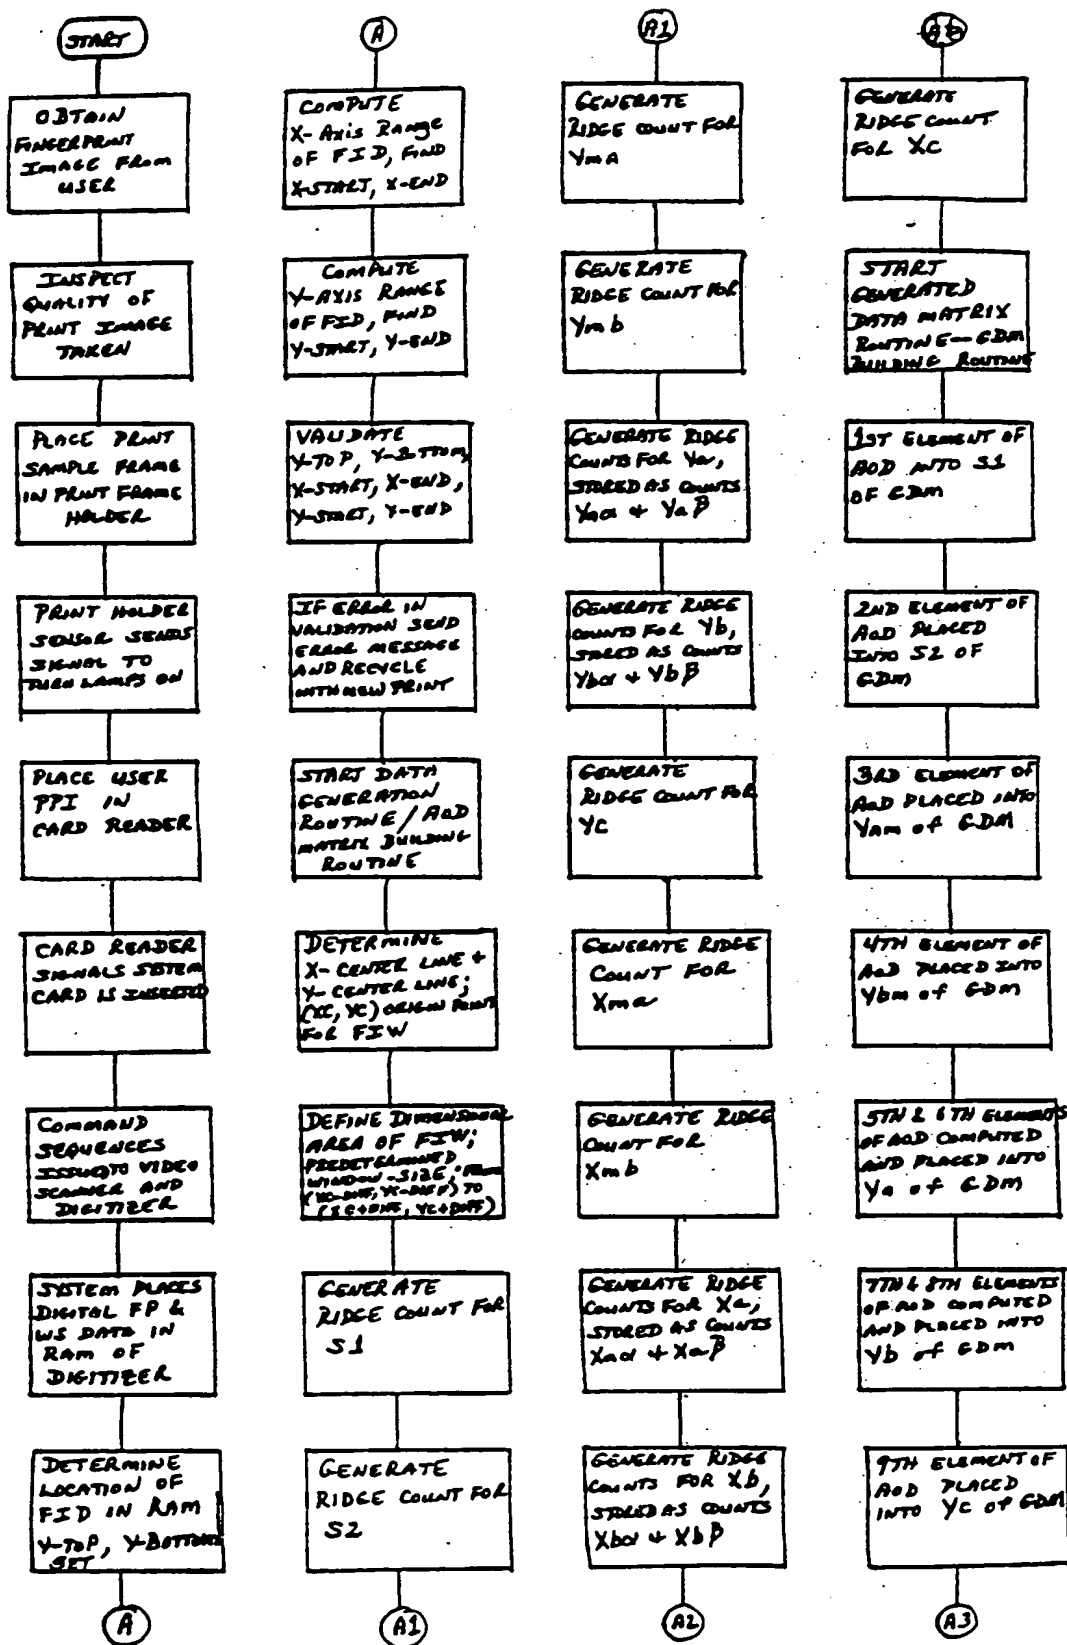 START
OBTAIN
FINGERPRINT
IMAGE FROM
USER
INSPECT
QUALITY OF
PRINT IMAGE
TAKEN
PLACE PRINT
SAMPLE FRAME
IN PRINT FRAME
HOLDER
PRINT HOLDER
SENSOR SENDS
SIGNAL TO
TURN LAMPS ON
PLACE USER
PPI IN
CARD READER
CARD READER
SIGNALS SYSTEM
CARD IS INSERTED
COMMAND
SEQUENCES
ISSUED TO VIDEO
SCANNER AND
DIGITIZER
SYSTEM PLACES
DIGITAL FP &
WS DATA IN
RAM OF
DIGITIZER
DETERMINE
LOCATION OF
FID IN RAM
Y-TOP, Y-BOTTOM
SET
A
A
COMPUTE
X-AXIS RANGE
OF FID, FIND
X-START, X-END
COMPUTE
Y-AXIS RANGE
OF FID, FIND
Y-START, Y-END
VALIDATE
Y-TOP, Y-BOTTOM,
X-START, X-END,
Y-START, Y-END
IF ERROR IN
VALIDATION SEND
ERROR MESSAGE
AND RECYCLE
WITH NEW PRINT
START DATA
GENERATION
ROUTINE / AOD
MATRIX BUILDING
ROUTINE
DETERMINE
X-CENTER LINE +
Y-CENTER LINE;
(XC, YC) ORIGIN POINT
FOR FIW
DEFINE DIMENSIONAL
AREA OF FIW;
PREDETERMINED
WINDOW-SIZE; FROM
(XC-DIFF, YC-DIFF) TO
(XC+DIFF, YC+DIFF)
GENERATE
RIDGE COUNT FOR
S1
GENERATE
RIDGE COUNT FOR
S2
A1
A1
GENERATE
RIDGE COUNT FOR
Yma
GENERATE
RIDGE COUNT FOR
Ymb
GENERATE RIDGE
COUNTS FOR Ya,
STORED AS COUNTS
Yaα + Yaβ
GENERATE RIDGE
COUNTS FOR Yb,
STORED AS COUNTS
Ybα + Ybβ
GENERATE
RIDGE COUNT FOR
YC
GENERATE RIDGE
COUNT FOR
Xma
GENERATE RIDGE
COUNT FOR
Xmb
GENERATE RIDGE
COUNTS FOR Xa,
STORED AS COUNTS
Xaα + Xaβ
GENERATE RIDGE
COUNTS FOR Xb,
STORED AS COUNTS
Xbα + Xbβ
A2
GENERATE
RIDGE COUNT
FOR XC
START
GENERATED
DATA MATRIX
ROUTINE—GDM
BUILDING ROUTINE
1ST ELEMENT OF
AOD INTO S1
OF GDM
2ND ELEMENT OF
AOD PLACED
INTO S2 OF
GDM
3RD ELEMENT OF
AOD PLACED INTO
Yam of GDM
4TH ELEMENT OF
AOD PLACED INTO
Ybm of GDM
5TH & 6TH ELEMENTS
OF AOD COMPUTED
AND PLACED INTO
Ya of GDM
7TH & 8TH ELEMENTS
OF AOD COMPUTED
AND PLACED INTO
Yb of GDM
9TH ELEMENT OF
AOD PLACED
INTO YC of GDM
A3